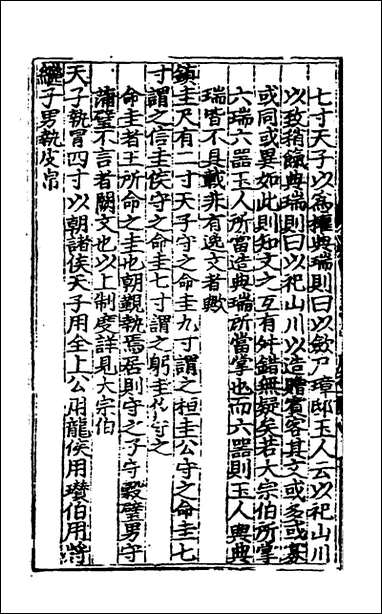 七寸天子以為權典瑞則曰以斂尸璋邸玉人云以祀山川
以致稍餼典瑞則曰以祀山川以造贈賓客其文或多或寡
或同或異如此則知文之互有舛錯無疑矣若大宗伯所掌
六瑞六器玉人所當造典瑞所當掌也而六器則玉人與典
瑞皆不具載非有逸文者歟
鎮圭尺有二寸天子守之命圭九寸謂之桓圭公守之命圭七
寸謂之信圭侯守之命圭七寸謂之躬圭伯守之
命圭者王所命之圭也朝覲執焉居則守之子守榖璧男守
蒲璧不言者闕文也以上制度詳見大宗伯
天子執冒四寸以朝諸侯天子用全上公用龍侯用瓚伯用將
繼子男執皮帛